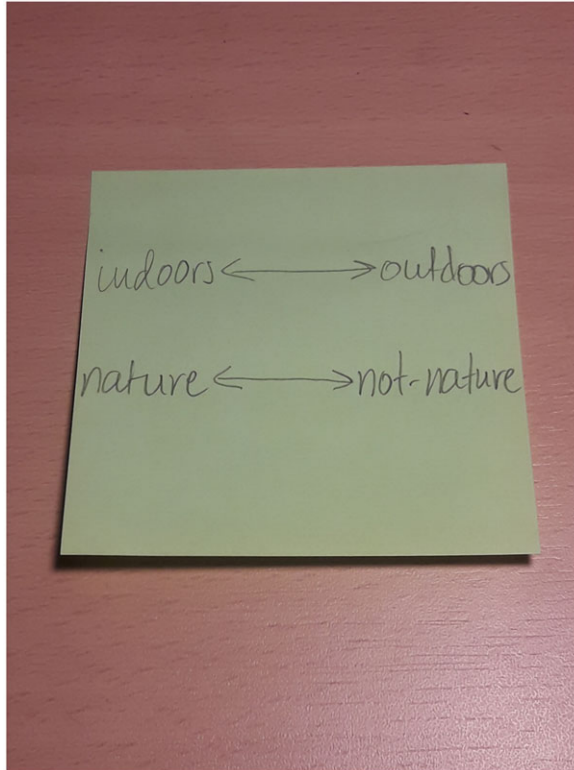 indoors ⟷ outdoors
nature ⟷ not-nature